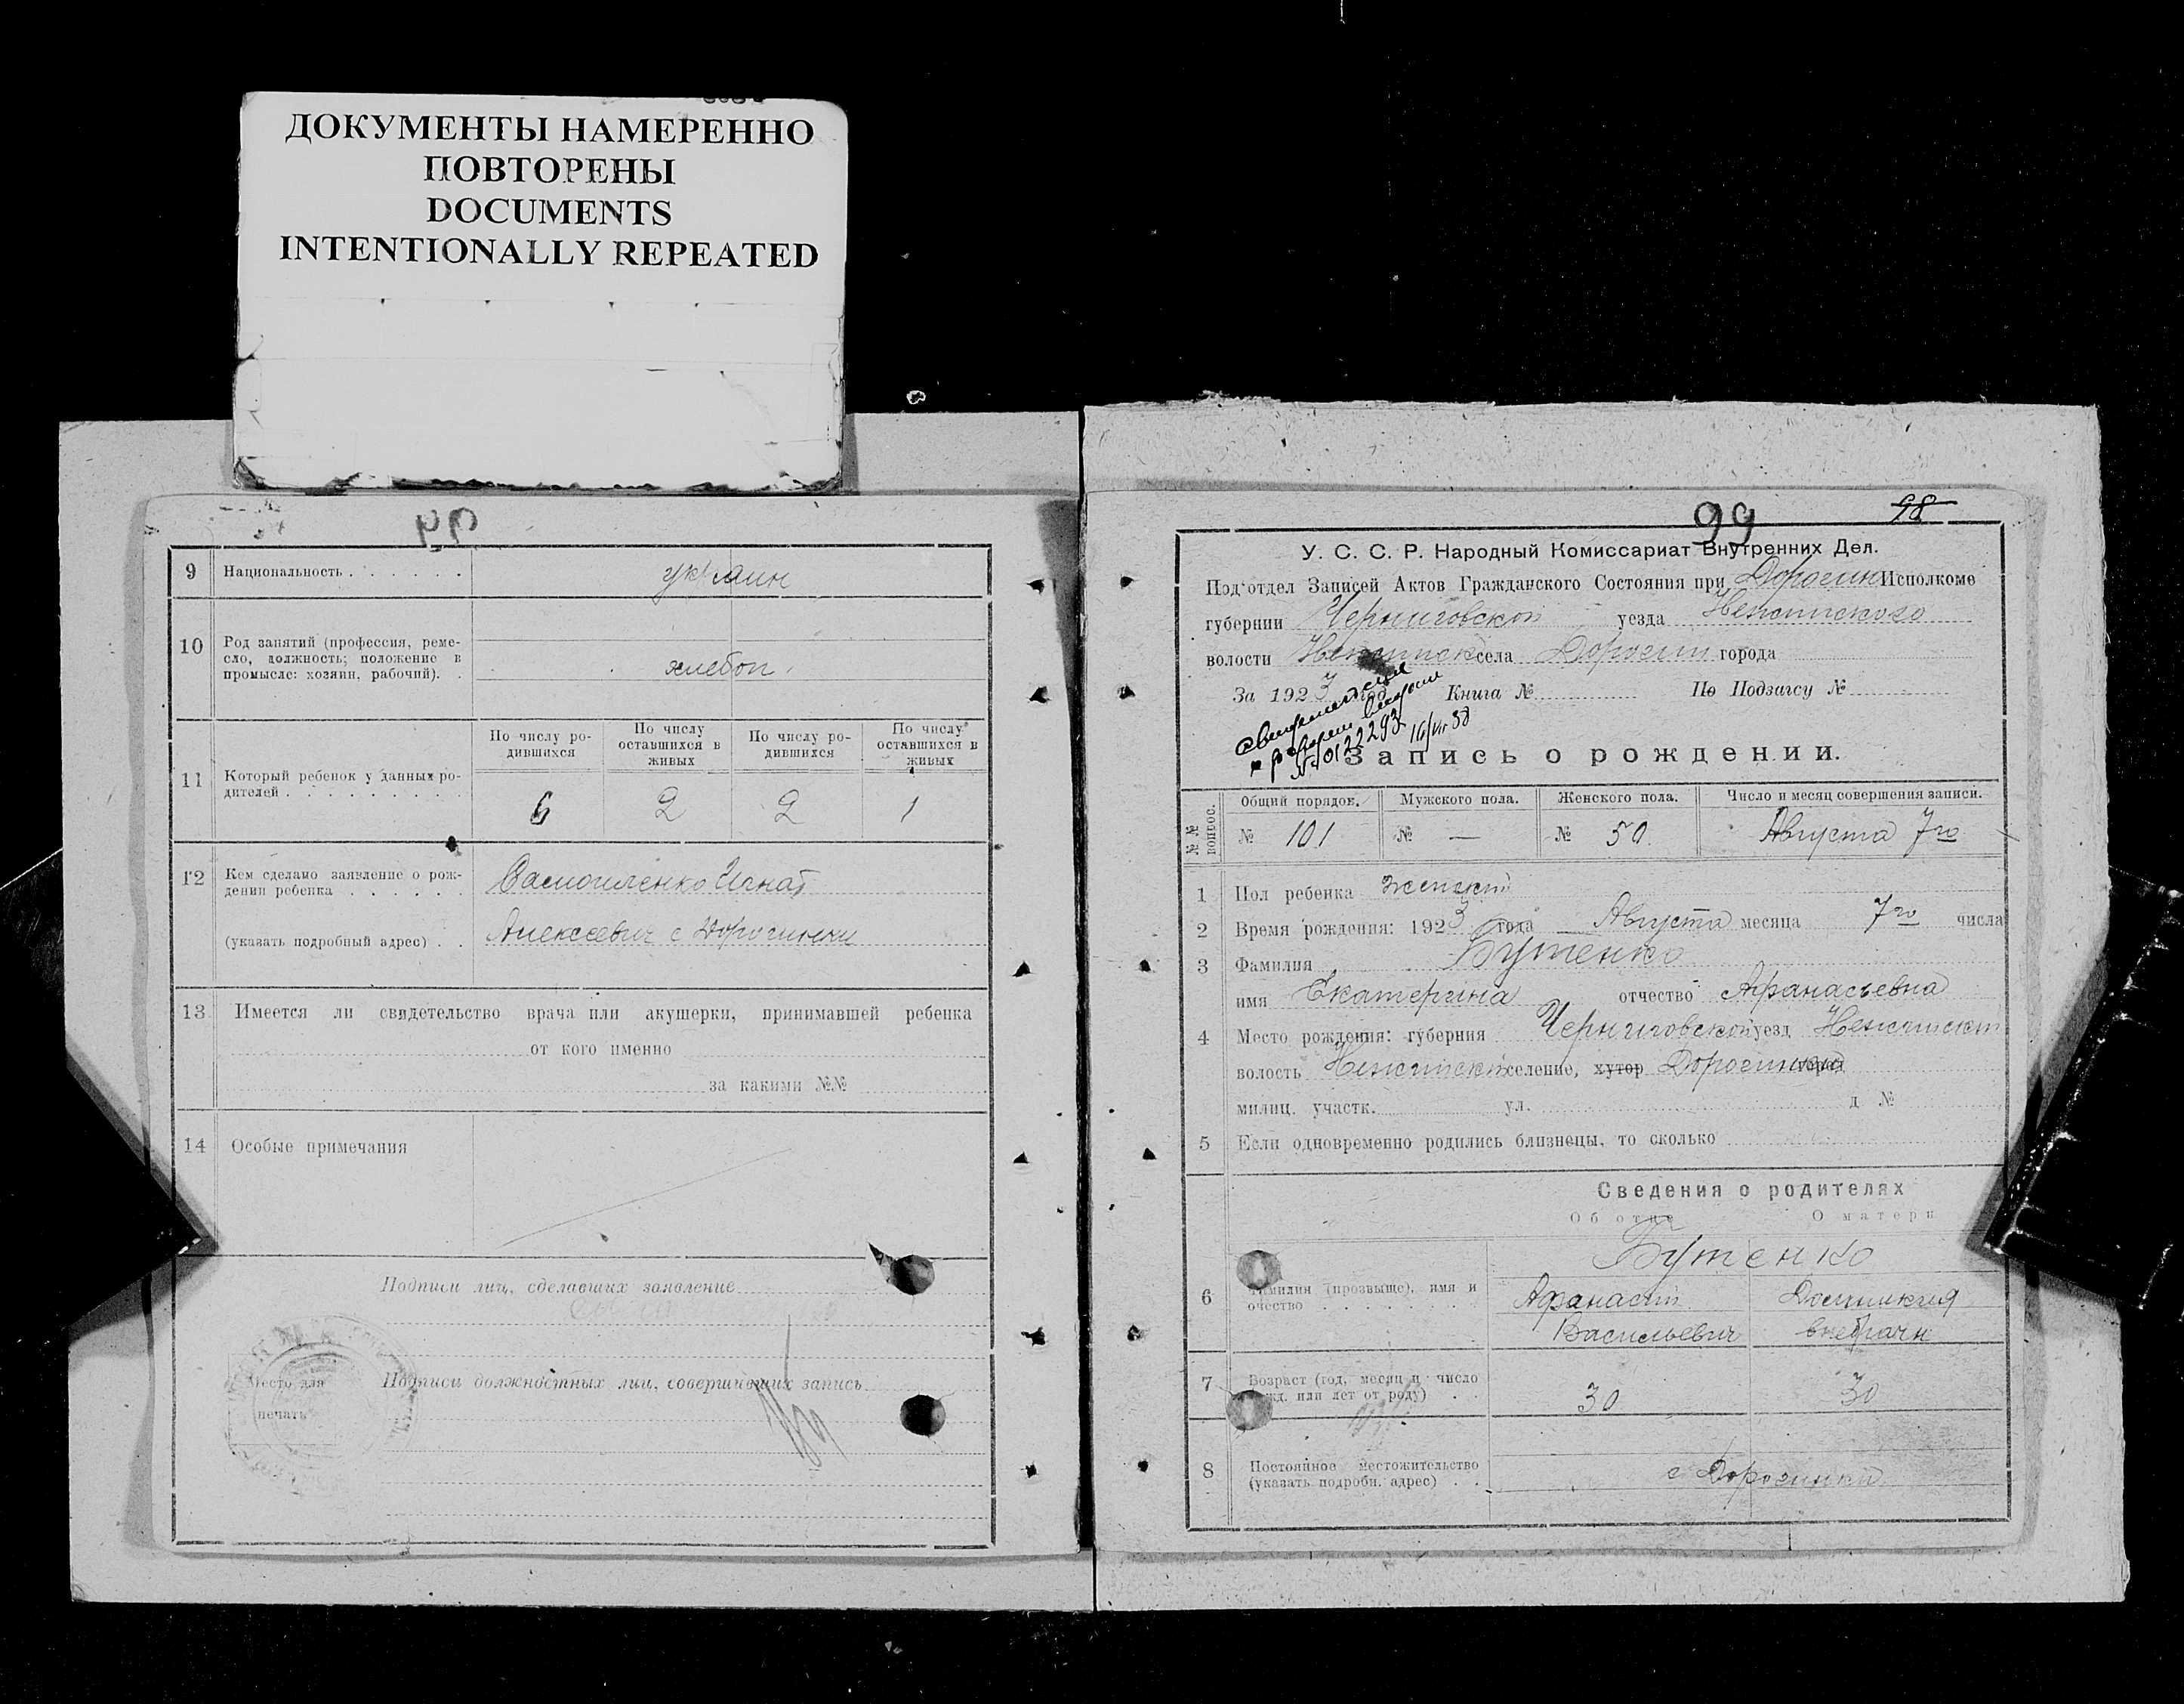 ДОКУМЕНТЫ НАМЕРЕННО
ПОВТОРЕНЫ
DOCUMENTS
INTENTIONALLY REPEATED
9 Национальность . . . . . . украин
10 Род занятий (профессия, реме-
сло, должность; положение в
промысле: хозяин, рабочий). . хлебоп.
11 Который ребенок у данных ро-
дителей . . . . . . . . .
По числу ро-
дившихся
По числу
оставшихся в
живых
По числу ро-
дившихся
По числу
оставшихся в
живых
6 2 2 1
12 Кем сделано заявление о рож-
дении ребенка . . . . . . Игнат
(указать подробный адрес) . . Алексеевич с Дорогинки
13 Имеется ли свидетельство врача или акушерки, принимавшей ребенка
от кого именно
за какими №№
14 Особые примечания
Подписи лиц, сделавших заявление
Место для
печати
Подписи должностных лиц, совершивших запись
99 98
У. С. С. Р. Народный Комиссариат Внутренних Дел.
Под'отдел Записей Актов Гражданского Состояния при Дорогин Исполкоме
губернии Черниговской уезда Нежинского
волости Нежинск села Дорогин города
За 1923 год Книга № По Подзагсу №
№ 0122293
Запись о рождении.
№№ вопрос.
Общий порядок. Мужского пола. Женского пола. Число и месяц совершения записи.
№ 101 № — № 50 Августа 7го
1 Пол ребенка женский
2 Время рождения: 1923 года Августа месяца 7го числа
3 Фамилия Бутенко
имя Екатерина отчество Афанасьевна
4 Место рождения: губерния Черниговской уезд Нежинский
волость Нежинск селение, хутор Дорогинка город
милиц. участк. ул. д №
5 Если одновременно родились близнецы, то сколько
Сведения о родителях
Об отце О матери
Бутенко
6 Фамилия (прозвище), имя и
очество . . . . . . . .
Афанасий
Васильевич
7 Возраст (год, месяц и число
рожд. или лет от роду) . .
30 30
8 Постоянное местожительство
(указать подробн. адрес) . .
с Дорогинки